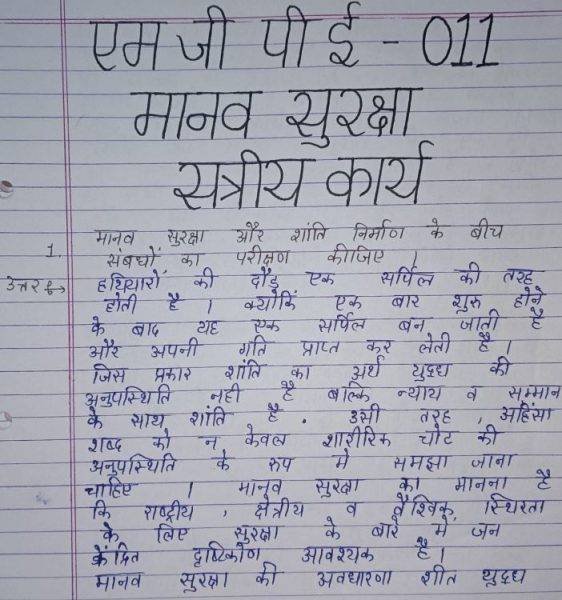 एम जी पी ई - 011
मानव सुरक्षा
सत्रीय कार्य
मानव सुरक्षा और शांति निर्माण के बीच
1. संबंधों का परीक्षण कीजिए ।
उत्तर हथियारों की दौड़ एक सर्पिल की तरह
होती है । क्योंकि एक बार शुरू होने
के बाद यह एक सर्पिल बन जाती है
और अपनी गति प्राप्त कर लेती है ।
जिस प्रकार शांति का अर्थ युद्ध की
अनुपस्थिति नही है बल्कि न्याय व सम्मान
के साथ शांति है . उसी तरह , अहिंसा
शब्द को न केवल शारीरिक चोट की
अनुपस्थिति के रूप मे समझा जाना
चाहिए । मानव सुरक्षा का मानना है
कि राष्ट्रीय , क्षेत्रीय व वैश्विक स्थिरता
के लिए सुरक्षा के बारे मे जन
केंद्रित दृष्टिकोण आवश्यक है ।
मानव सुरक्षा की अवधारणा शीत युद्ध